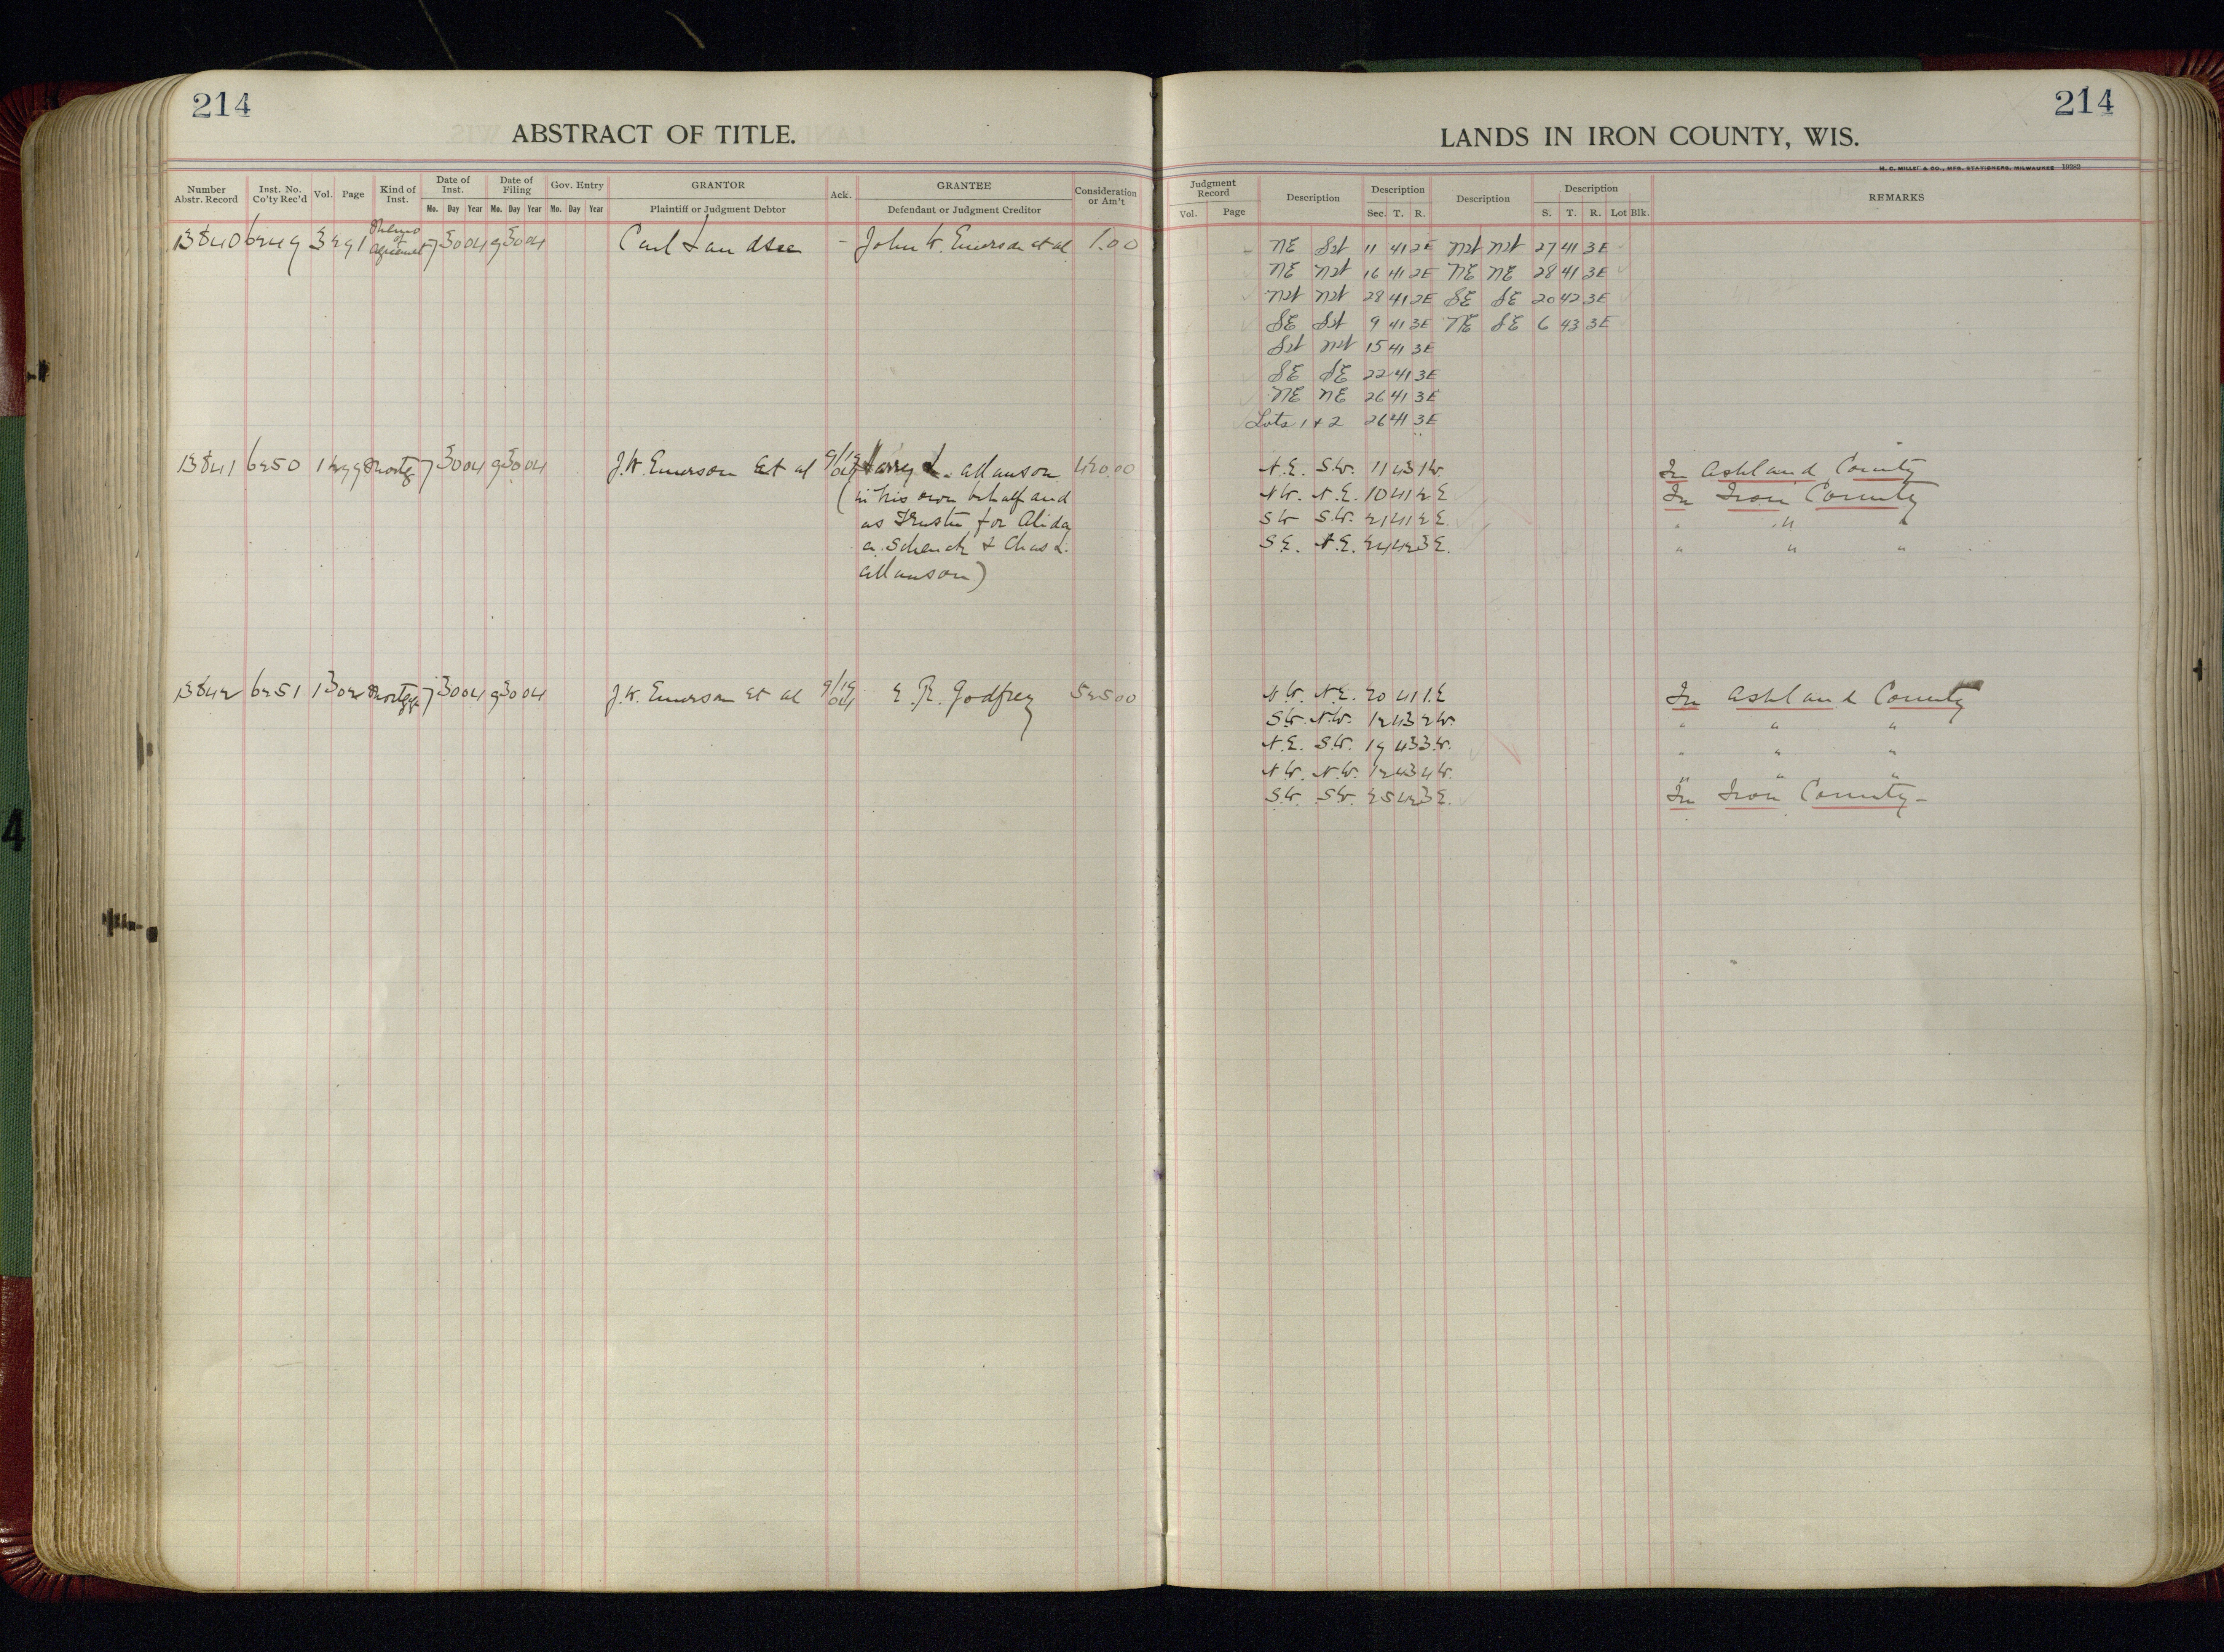 214
ABSTRACT OF TITLE.
Number Abstr. Record | Inst. No. Co'ty Rec'd | Vol. | Page | Kind of Inst. | Date of Inst. Mo. Day Year | Date of Filing Mo. Day Year | Gov. Entry Mo. Day Year | GRANTOR Plaintiff or Judgment Debtor | Ack. | GRANTEE Defendant or Judgment Creditor | Consideration or Am't
13840 6249 3 291 Memo of Agreement 7 30 04 9 30 04 Carl Landsee - John W. Emerson et al 1.00
13841 6250 1 299 Mortg 7 30 04 9 30 04 J.W. Emerson et al 9/19 04 Harry L. Allanson 420.00
(in his own behalf and
as Trustee for Alida
A. Schenck & Chas L.
Allanson)
13842 6251 1 302 Mortgage 7 30 04 9 30 04 J.W. Emerson et al 9/19 04 E. R. Godfrey 525.00
214
LANDS IN IRON COUNTY, WIS.
M. C. MILLET & CO., MFG. STATIONERS, MILWAUKEE
Judgment Record Vol. Page | Description | Description Sec. T. R. | Description | Description S. T. R. Lot Blk. | REMARKS
NE SW 11 41 2E NW NW 27 41 3E
NE NW 16 41 2E NE NE 28 41 3E
NW NW 28 41 2E SE SE 20 42 3E
SE SW 9 41 3E NE SE 6 43 3E
SW NW 15 41 3E
SE SE 22 41 3E
NE NE 26 41 3E
Lots 1 + 2 26 41 3E
N.E. S.W. 11 43 1W. In Ashland County
N.W. N.E. 10 41 2E In Iron County
SW S.W. 21 41 2E. " " "
S.E. N.E. 24 42 3E. " " "
N.W. N.E. 20 41 1.E In Ashland County
S.W. N.W. 12 43 2W. " " "
N.E. S.W. 19 43 3W. " " "
N.W. N.W. 12 43 4W. " " "
S.W. S.W. 25 42 3E. In Iron County-
4